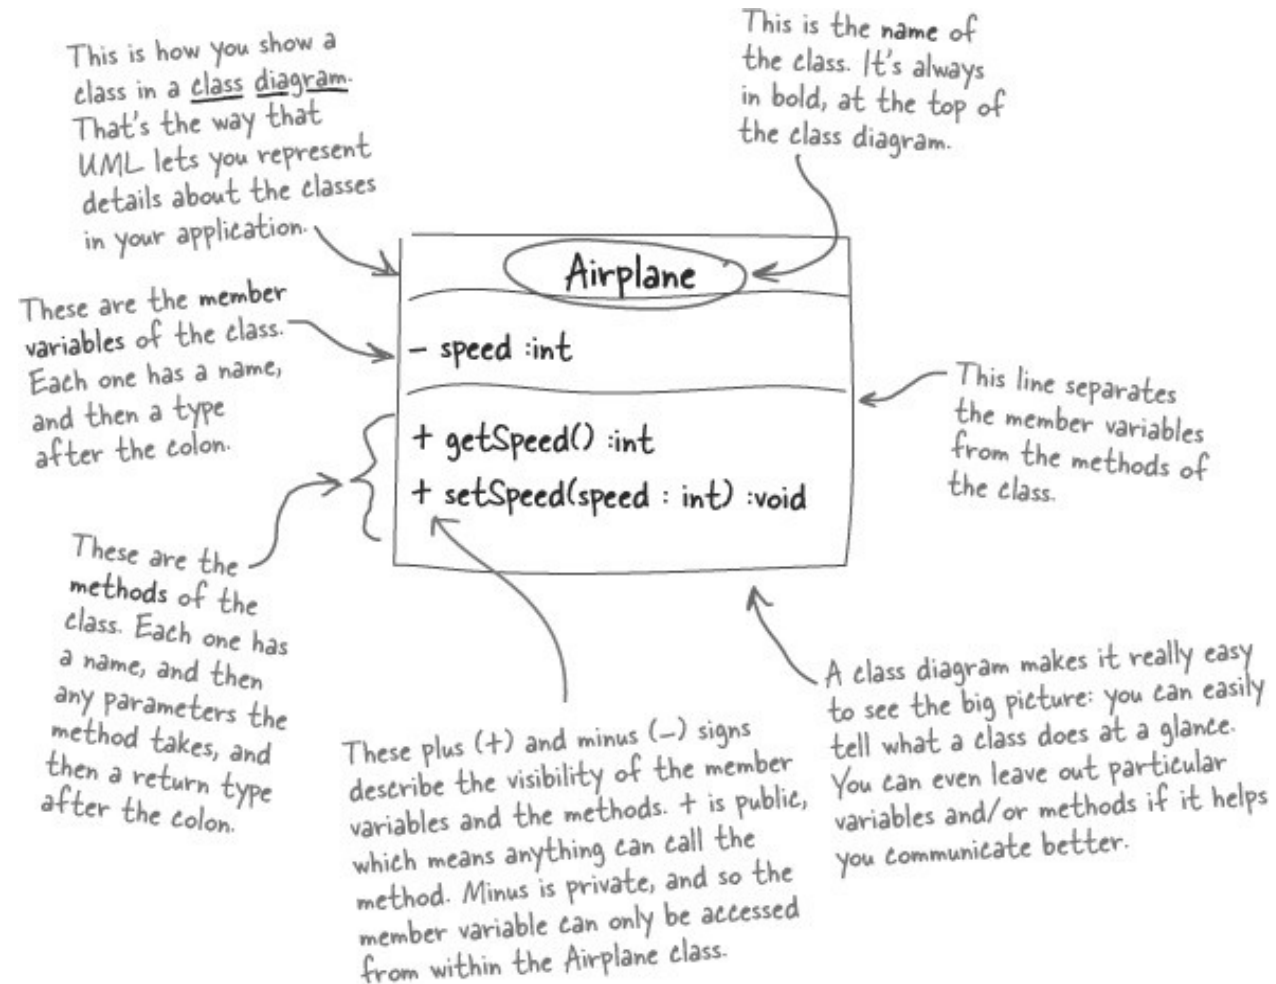 This is how you show a
class in a class diagram.
That's the way that
UML lets you represent
details about the classes
in your application.
This is the name of
the class. It's always
in bold, at the top of
the class diagram.
These are the member
variables of the class.
Each one has a name,
and then a type
after the colon.
Airplane
- speed :int
+ getSpeed() :int
+ setSpeed(speed : int) :void
This line separates
the member variables
from the methods of
the class.
These are the
methods of the
class. Each one has
a name, and then
any parameters the
method takes, and
then a return type
after the colon.
These plus (+) and minus (-) signs
describe the visibility of the member
variables and the methods. + is public,
which means anything can call the
method. Minus is private, and so the
member variable can only be accessed
from within the Airplane class.
A class diagram makes it really easy
to see the big picture: you can easily
tell what a class does at a glance.
You can even leave out particular
variables and/or methods if it helps
you communicate better.